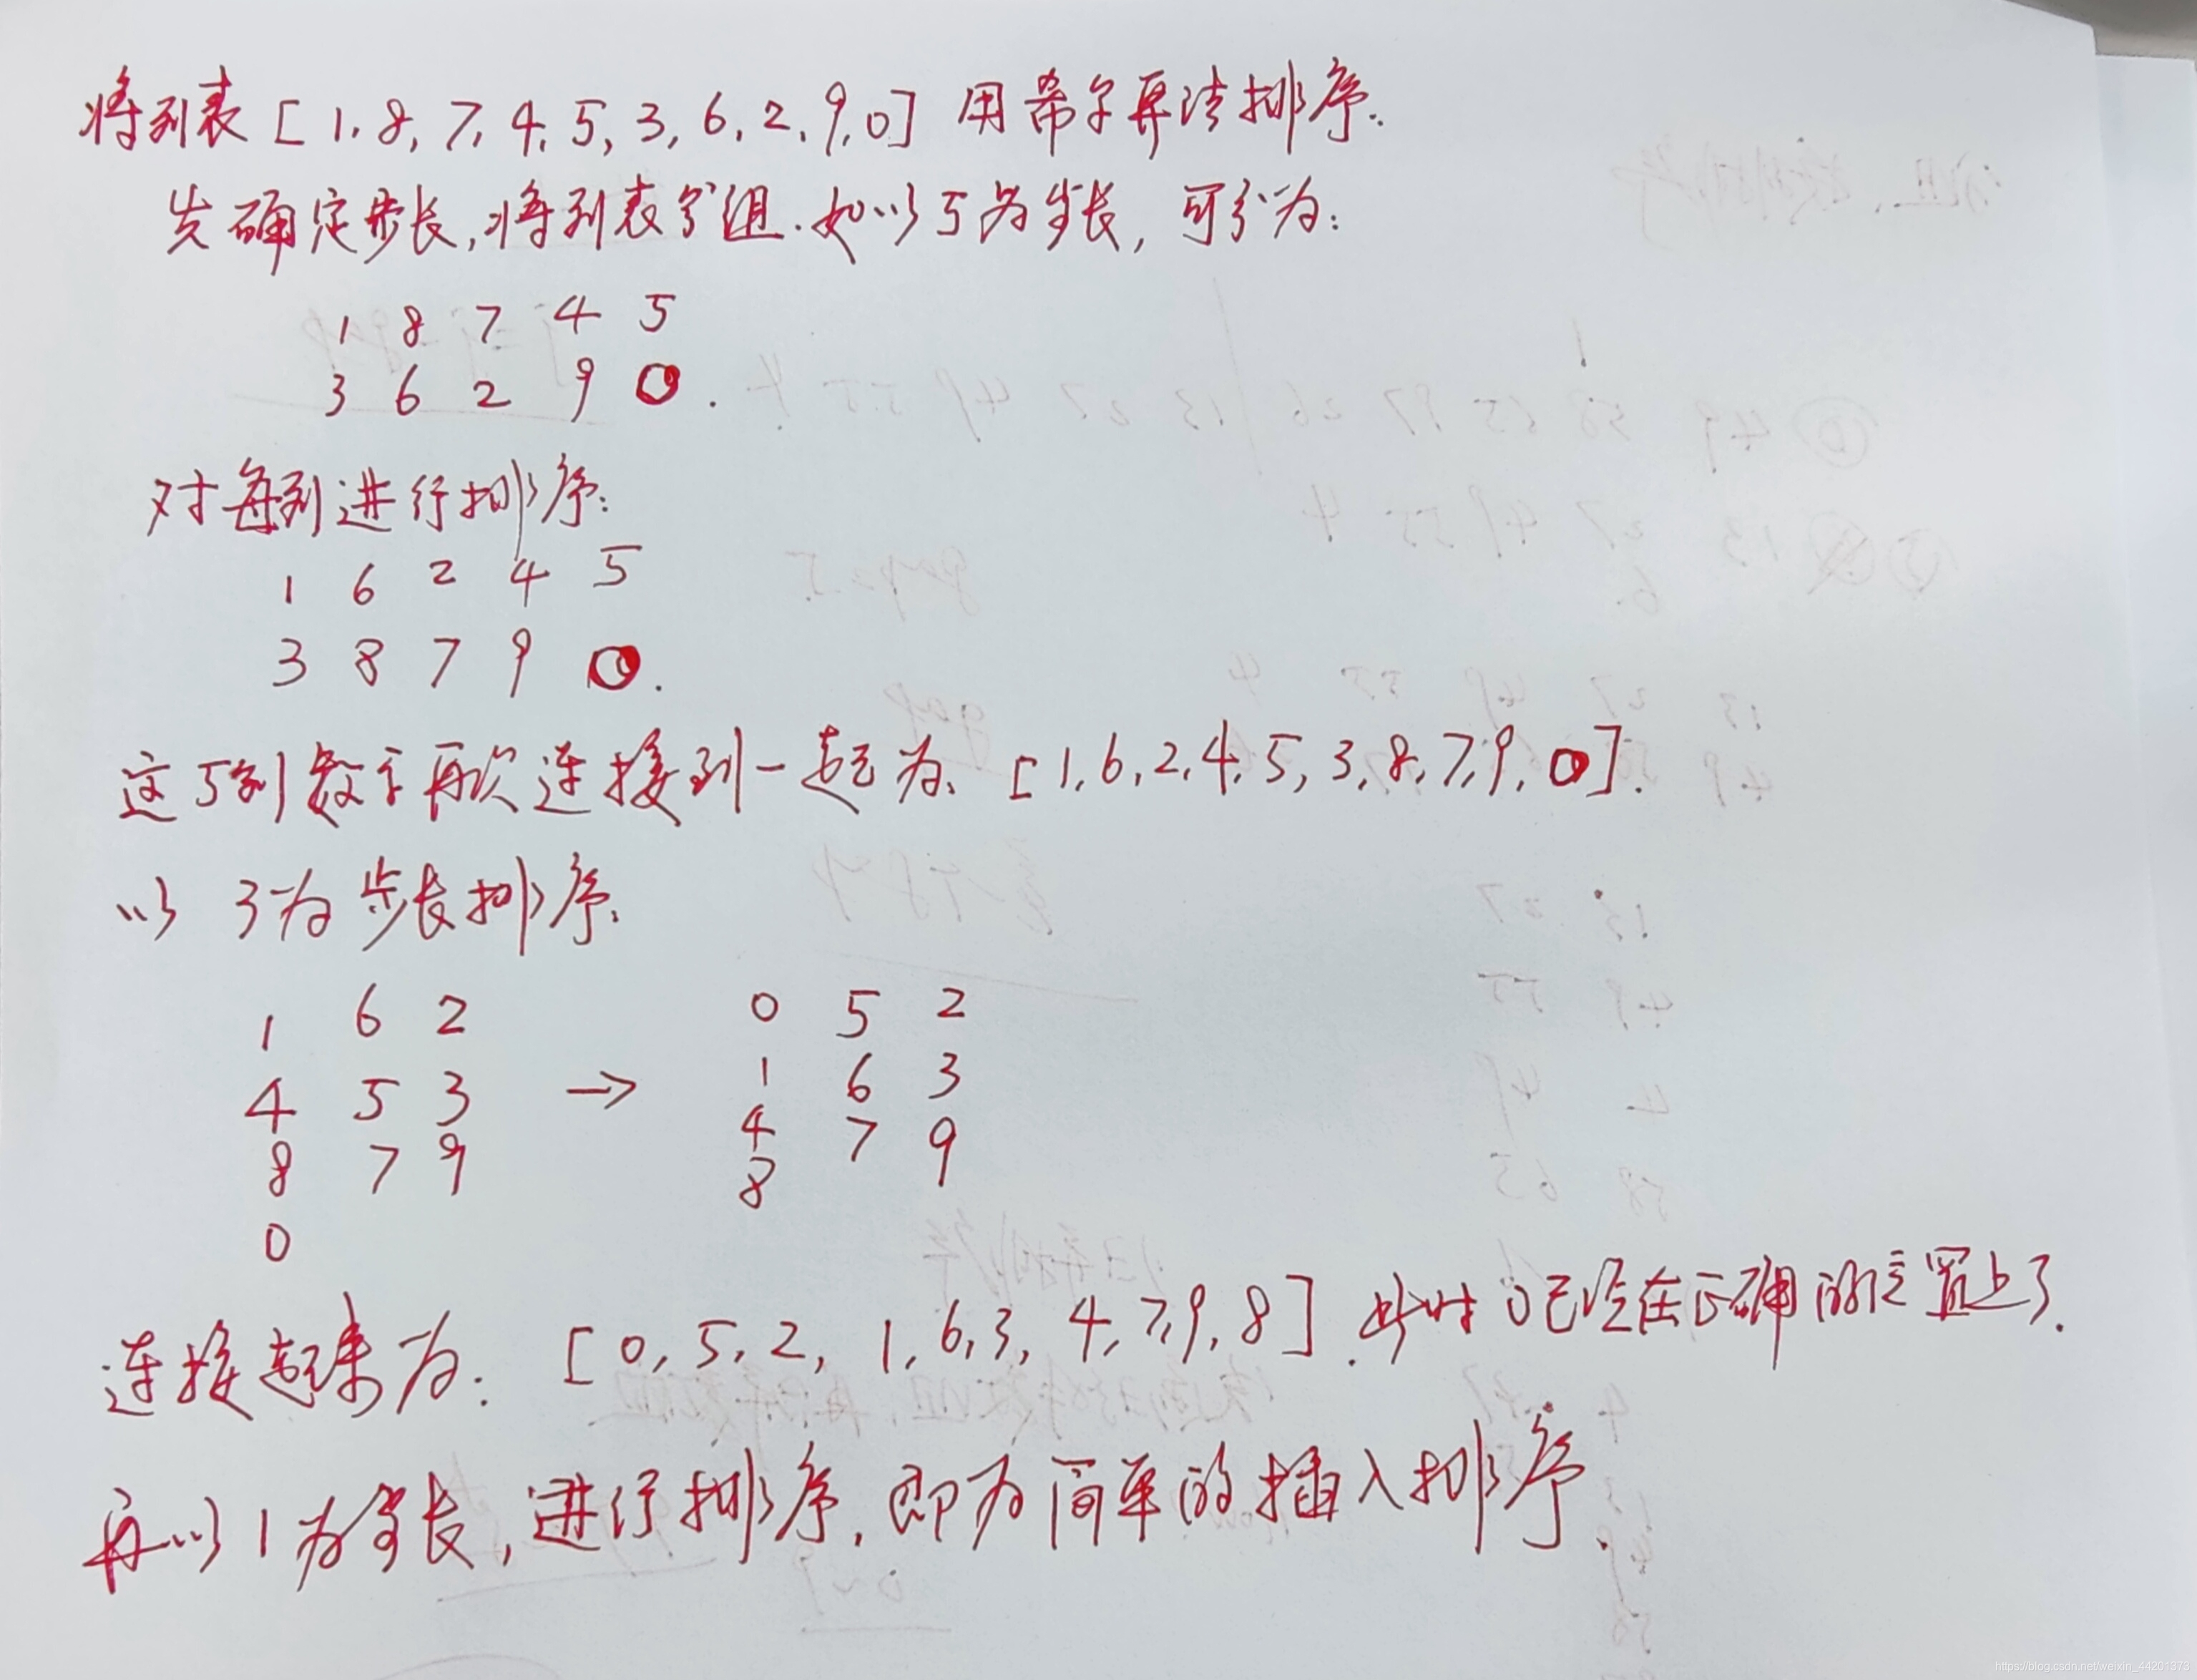 将列表 [1, 8, 7, 4, 5, 3, 6, 2, 9, 0] 用希尔算法排序.
先确定步长, 将列表分组. 如以5为步长, 可分为:
1 8 7 4 5
3 6 2 9 0.
对每列进行排序:
1 6 2 4 5
3 8 7 9 0.
这5列数字再次连接到一起为、[1, 6, 2, 4, 5, 3, 8, 7, 9, 0].
以 3为步长排序.
1 6 2 0 5 2
4 5 3 → 1 6 3
8 7 9 4 7 9
0 8
连接起来为: [0, 5, 2, 1, 6, 3, 4, 7, 9, 8]. 此时0已经在正确的位置上了.
再以1为步长, 进行排序, 即为简单的插入排序.
https://blog.csdn.net/weixin_44201373